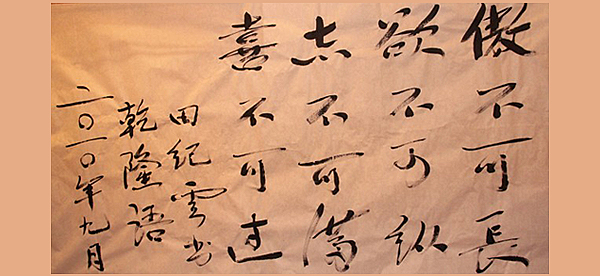 傲不可長
欲不可纵
志不可滿
喜不可過
田紀雲书
乾隆語
二〇一〇年九月